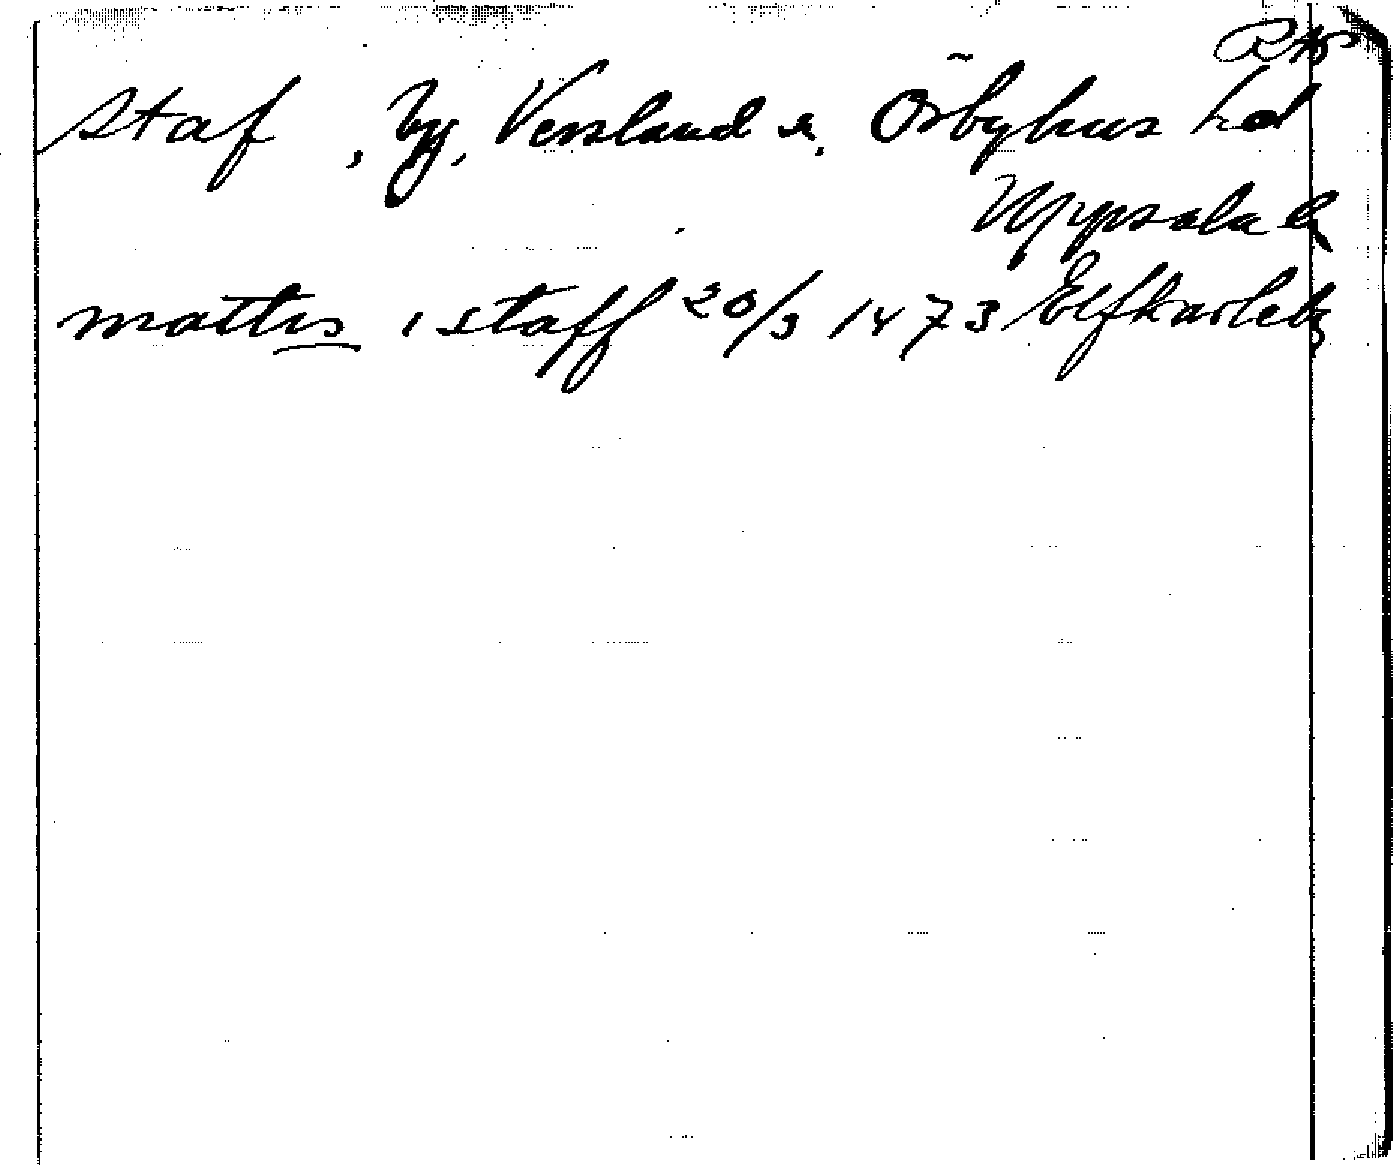 Staf, by, Vessland s., Örbyhus hd
Uppsala l.
mattis i staff 20/3 1473 Elfkarleby